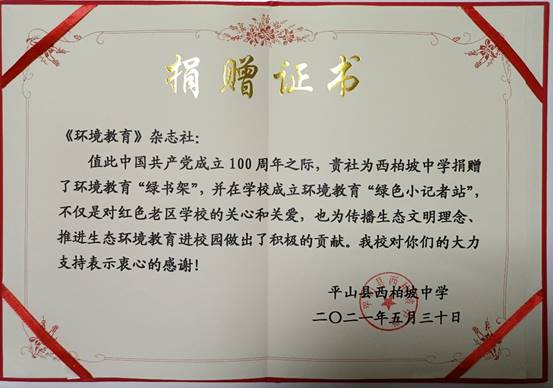 捐赠证书
《环境教育》杂志社:
值此中国共产党成立100周年之际,贵社为西柏坡中学捐赠
了环境教育“绿书架”,并在学校成立环境教育“绿色小记者站”,
不仅是对红色老区学校的关心和关爱,也为传播生态文明理念、
推进生态环境教育进校园做出了积极的贡献。我校对你们的大力
支持表示衷心的感谢!
平山县西柏坡中学
二〇二一年五月三十日